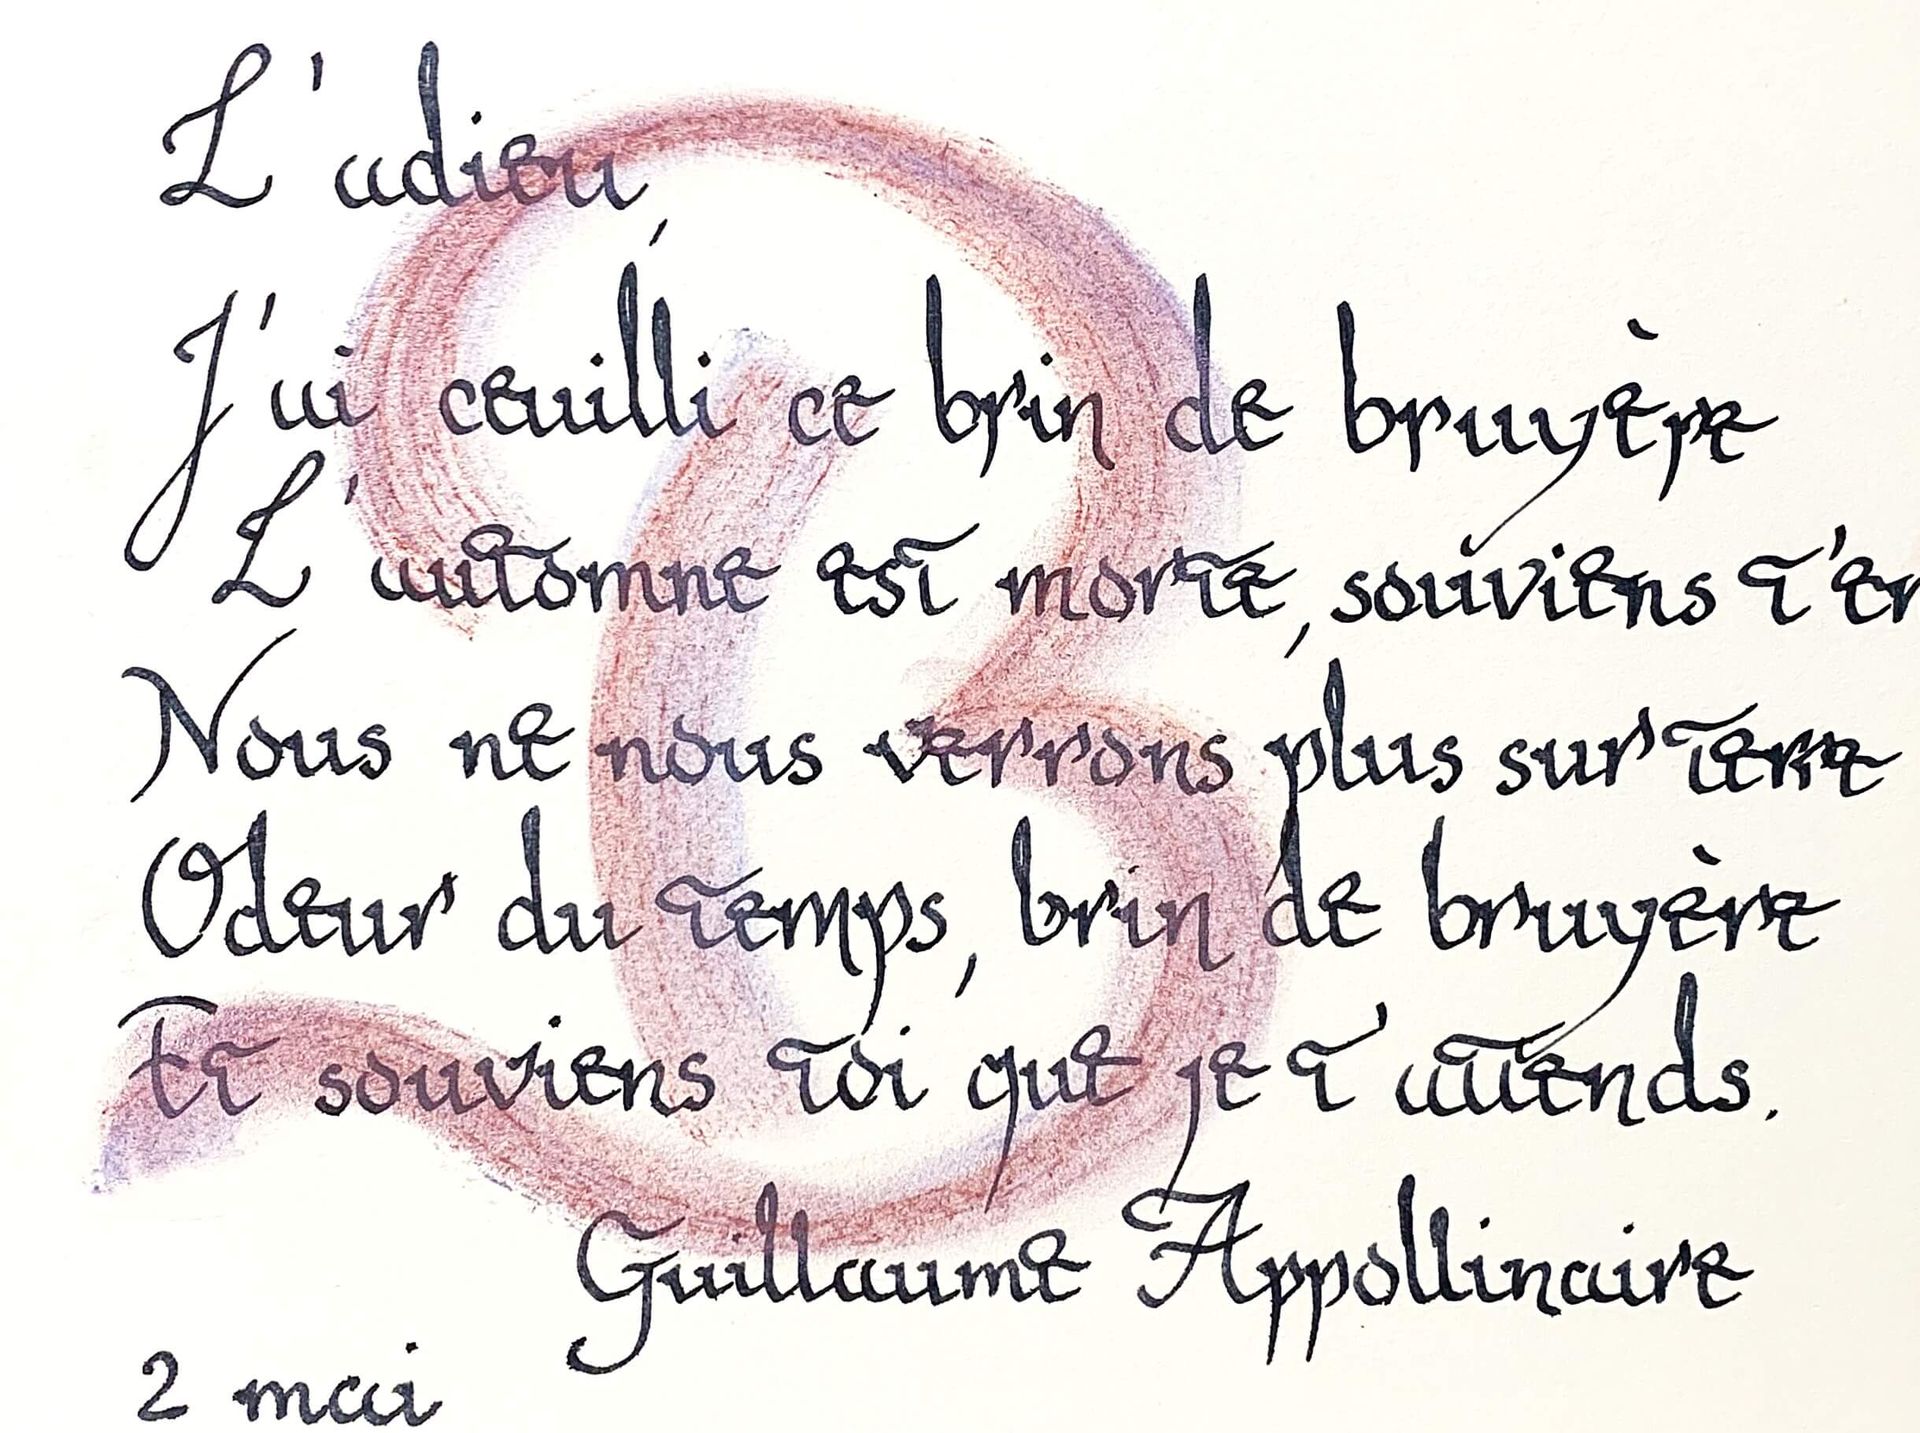 L'adieu,
J'ai ceuilli ce brin de bruyère
L'automne est morte, souviens t'en
Nous ne nous verrons plus sur terre
Odeur du temps, brin de bruyère
Et souviens toi que je t'attends.
Guillaume Appollinaire
2 mai